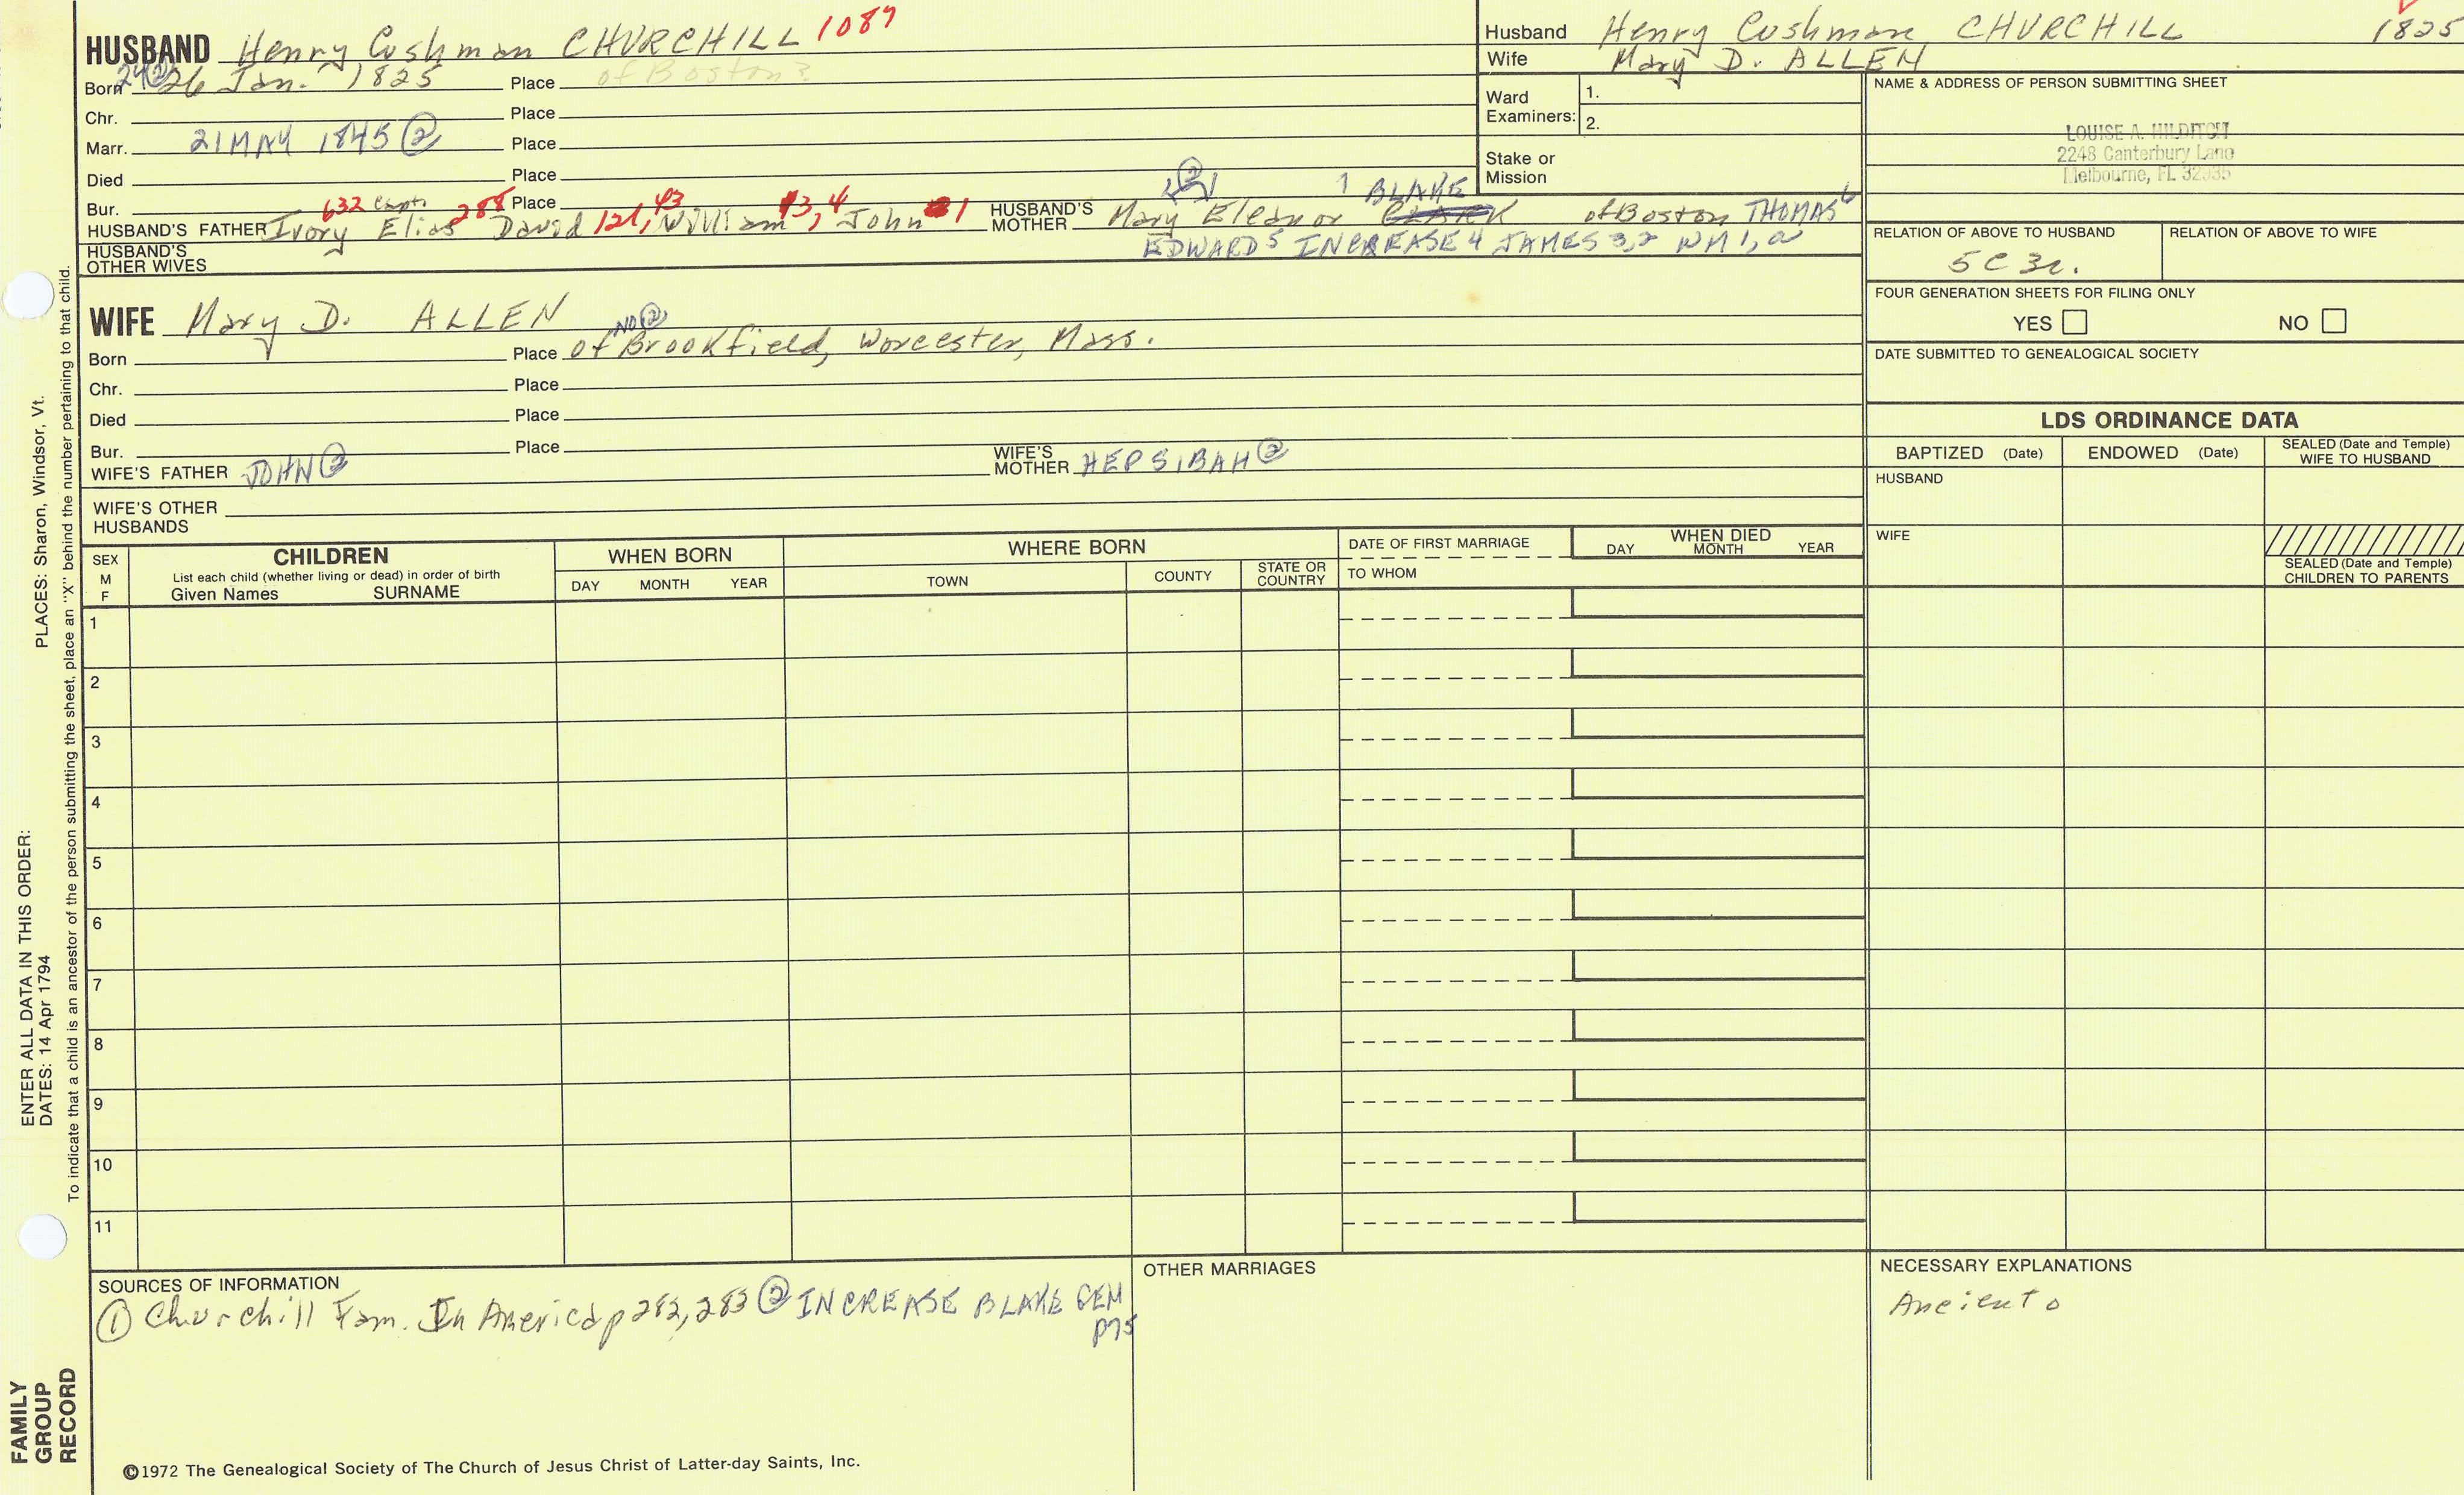 HUSBAND Henry Cushman CHURCHILL 1087
Born 24 ② 26 Jan. 1825 Place of Boston?
Chr. Place
Marr. 21 MAY 1845 ② Place
Died Place
Bur. Place
632 Capt. 288 121, 43 13, 4 1
HUSBAND'S FATHER Ivory Elias David William John
② 1 BLAKE
HUSBAND'S MOTHER Mary Eleanor of Boston THOMAS 6
EDWARD 5 INCREASE 4 JAMES 3,2 WM 1, ②
HUSBAND'S OTHER WIVES
WIFE Mary D. ALLEN
NO ②
Born Place of Brookfield, Worcester, Mass.
Chr. Place
Died Place
Bur. Place
WIFE'S FATHER JOHN ② WIFE'S MOTHER HEPSIBAH ②
WIFE'S OTHER HUSBANDS
Husband Henry Cushman CHURCHILL 1825
Wife Mary D. ALLEN
Ward Examiners: 1.
2.
Stake or Mission
NAME & ADDRESS OF PERSON SUBMITTING SHEET
LOUISE A. HILDITCH
2248 Canterbury Lane
Melbourne, FL 32935
RELATION OF ABOVE TO HUSBAND RELATION OF ABOVE TO WIFE
5C3r.
FOUR GENERATION SHEETS FOR FILING ONLY
YES NO
DATE SUBMITTED TO GENEALOGICAL SOCIETY
LDS ORDINANCE DATA
BAPTIZED (Date) ENDOWED (Date) SEALED (Date and Temple) WIFE TO HUSBAND
HUSBAND
WIFE
SEALED (Date and Temple) CHILDREN TO PARENTS
SEX M F
CHILDREN
List each child (whether living or dead) in order of birth
Given Names SURNAME
WHEN BORN
DAY MONTH YEAR
WHERE BORN
TOWN COUNTY STATE OR COUNTRY
DATE OF FIRST MARRIAGE
TO WHOM
WHEN DIED
DAY MONTH YEAR
1
2
3
4
5
6
7
8
9
10
11
SOURCES OF INFORMATION
① Churchill Fam. In America p 282, 283 ② INCREASE BLAKE GEN
p75
OTHER MARRIAGES
NECESSARY EXPLANATIONS
©1972 The Genealogical Society of The Church of Jesus Christ of Latter-day Saints, Inc.
FAMILY GROUP RECORD
ENTER ALL DATA IN THIS ORDER:
DATES: 14 Apr 1794
PLACES: Sharon, Windsor, Vt.
To indicate that a child is an ancestor of the person submitting the sheet, place an "X" behind the number pertaining to that child.